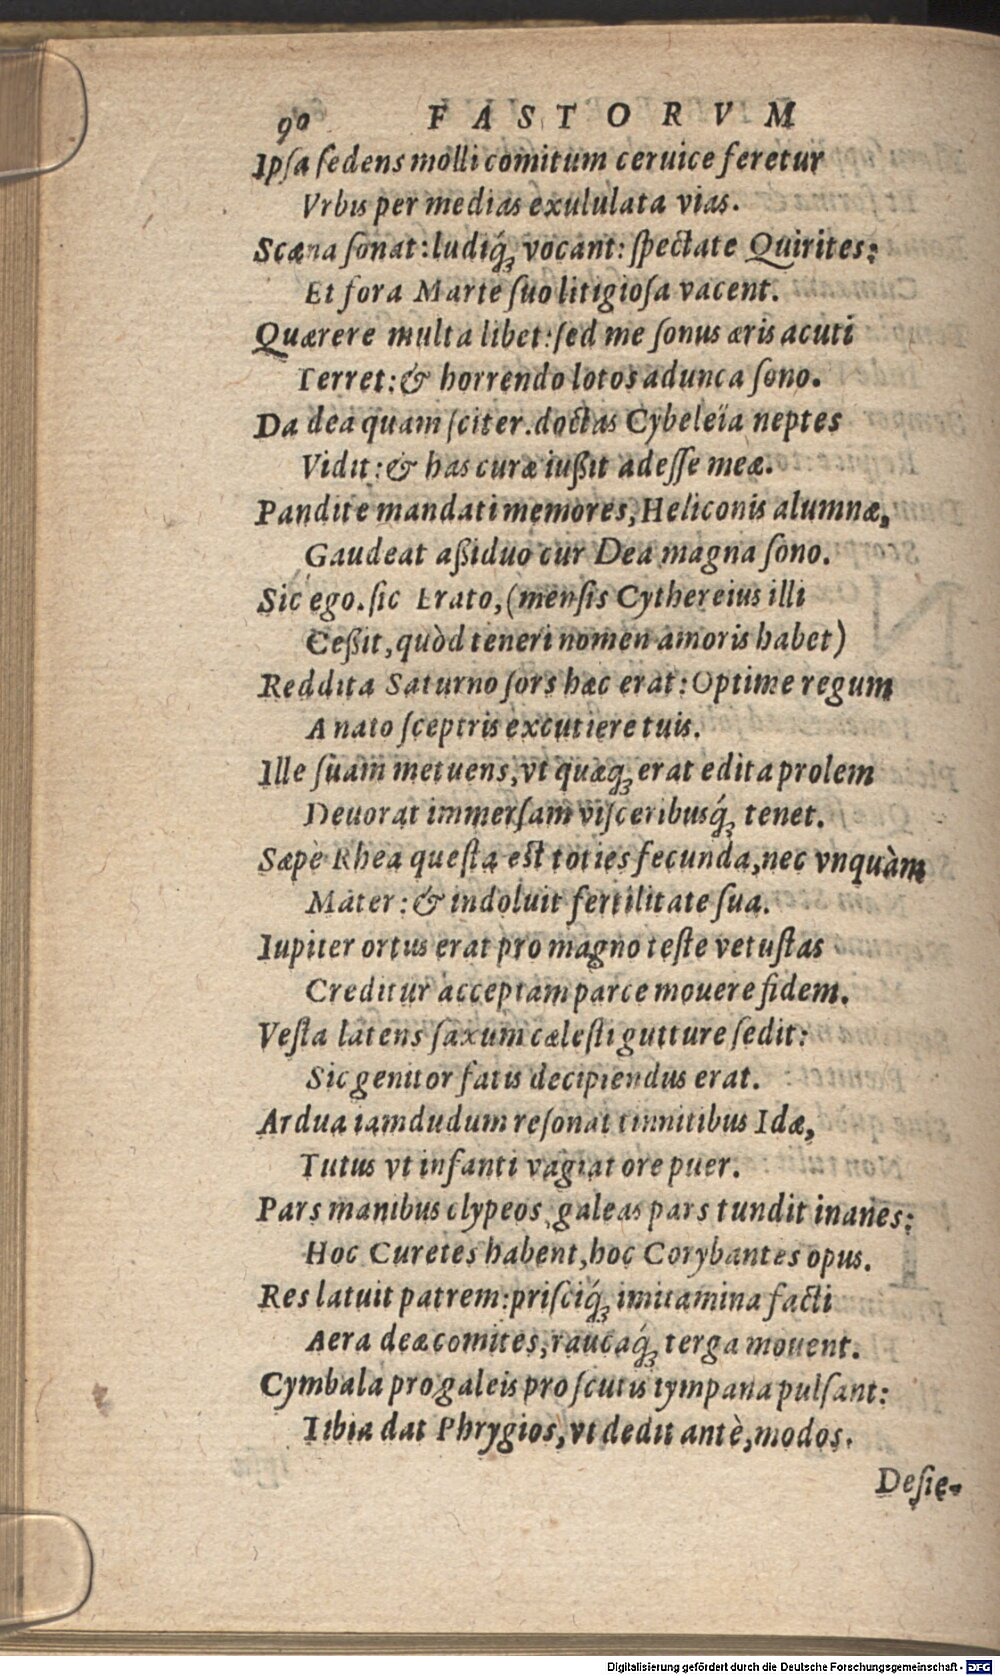 90 FASTORVM
Ipſa ſedens molli comitum ceruice feretur
Vrbis per medias exululata vias.
Scæna ſonat: ludiq́ꝫ vocant: ſpectate Quirites:
Et fora Marte ſuo litigioſa vacent.
Quærere multa libet: ſed me ſonus æris acuti
Terret: & horrendo lotos adunca ſono.
Da dea quam ſciter. doctas Cybeleïa neptes
Vidit: & has curæ iußit adeſſe meæ.
Pandite mandati memores, Heliconis alumnæ,
Gaudeat aßiduo cur Dea magna ſono.
Sic ego. ſic Erato, (menſis Cythereius illi
Ceßit, quòd teneri nomen amoris habet)
Reddita Saturno ſors hæc erat: Optime regum
A nato ſceptris excutiere tuis.
Ille ſuam metuens, vt quæqꝫ erat edita prolem
Deuorat immerſam viſceribusq́ꝫ tenet.
Sæpè Rhea queſta eſt toties fecunda, nec vnquàm
Mater: & indoluit fertilitate ſua.
Iupiter ortus erat pro magno teſte vetuſtas
Creditur acceptam parce mouere fidem.
Veſta latens ſaxum cæleſti gutture ſedit:
Sic genitor fatis decipiendus erat.
Ardua iamdudum reſonat tinnitibus Idæ,
Tutus vt infanti vagiat ore puer.
Pars manibus clypeos, galeas pars tundit inanes:
Hoc Curetes habent, hoc Corybantes opus.
Res latuit patrem: priſciq́ꝫ imitamina facti
Aera deæ comites, raucaq́ꝫ terga mouent.
Cymbala pro galeis pro ſcutis tympana pulſant:
Tibia dat Phrygios, vt dedit antè, modos.
Deſie-
Digitalisierung gefördert durch die Deutsche Forschungsgemeinschaft - DFG